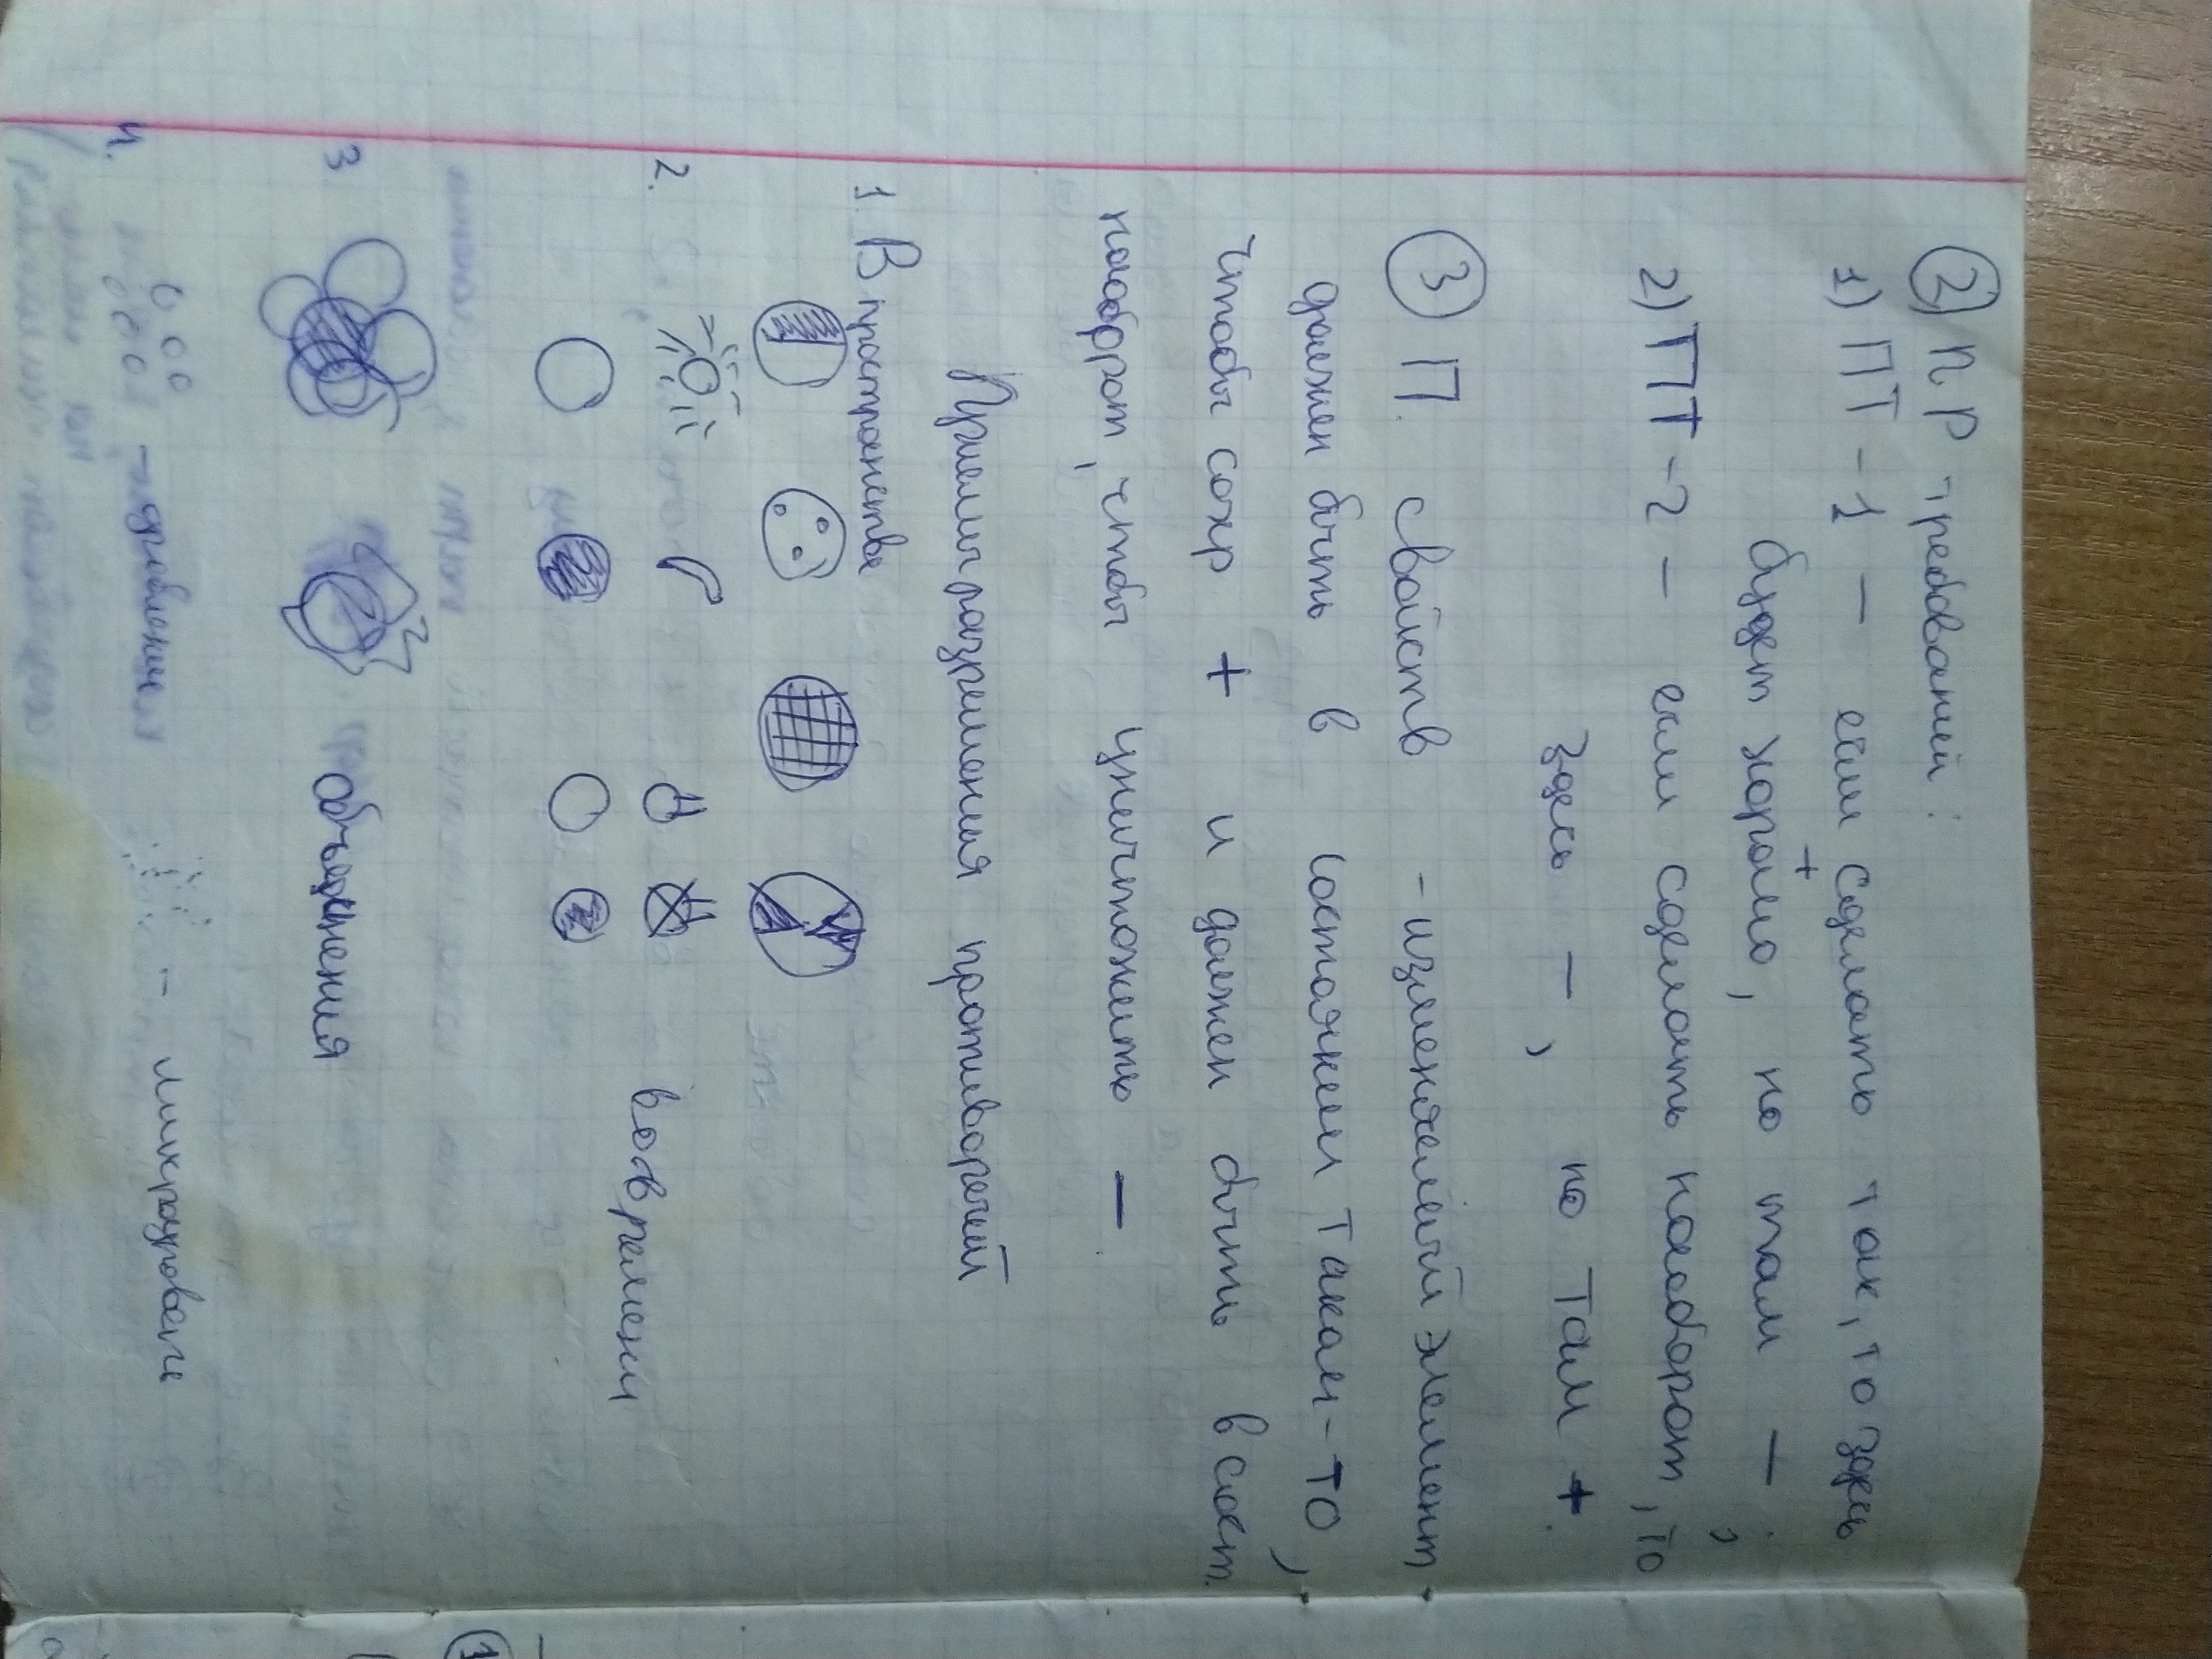 ② П Р требований:
1) ПТ-1 – если сделать так, то здесь
+
будет хорошо, но там – ;
2) ПТ-2 – если сделать наоборот, то
здесь – , но там +.
③ П. свойств - изменяемый элемент
должен быть в состоянии таком-то,
чтобы сохр + и должен быть в сост.
наоборот, чтобы уничтожить –.
Приемы разрешения противоречий
1. В пространстве
2. во времени
3 объединения
4. - дробления - микроуровеге